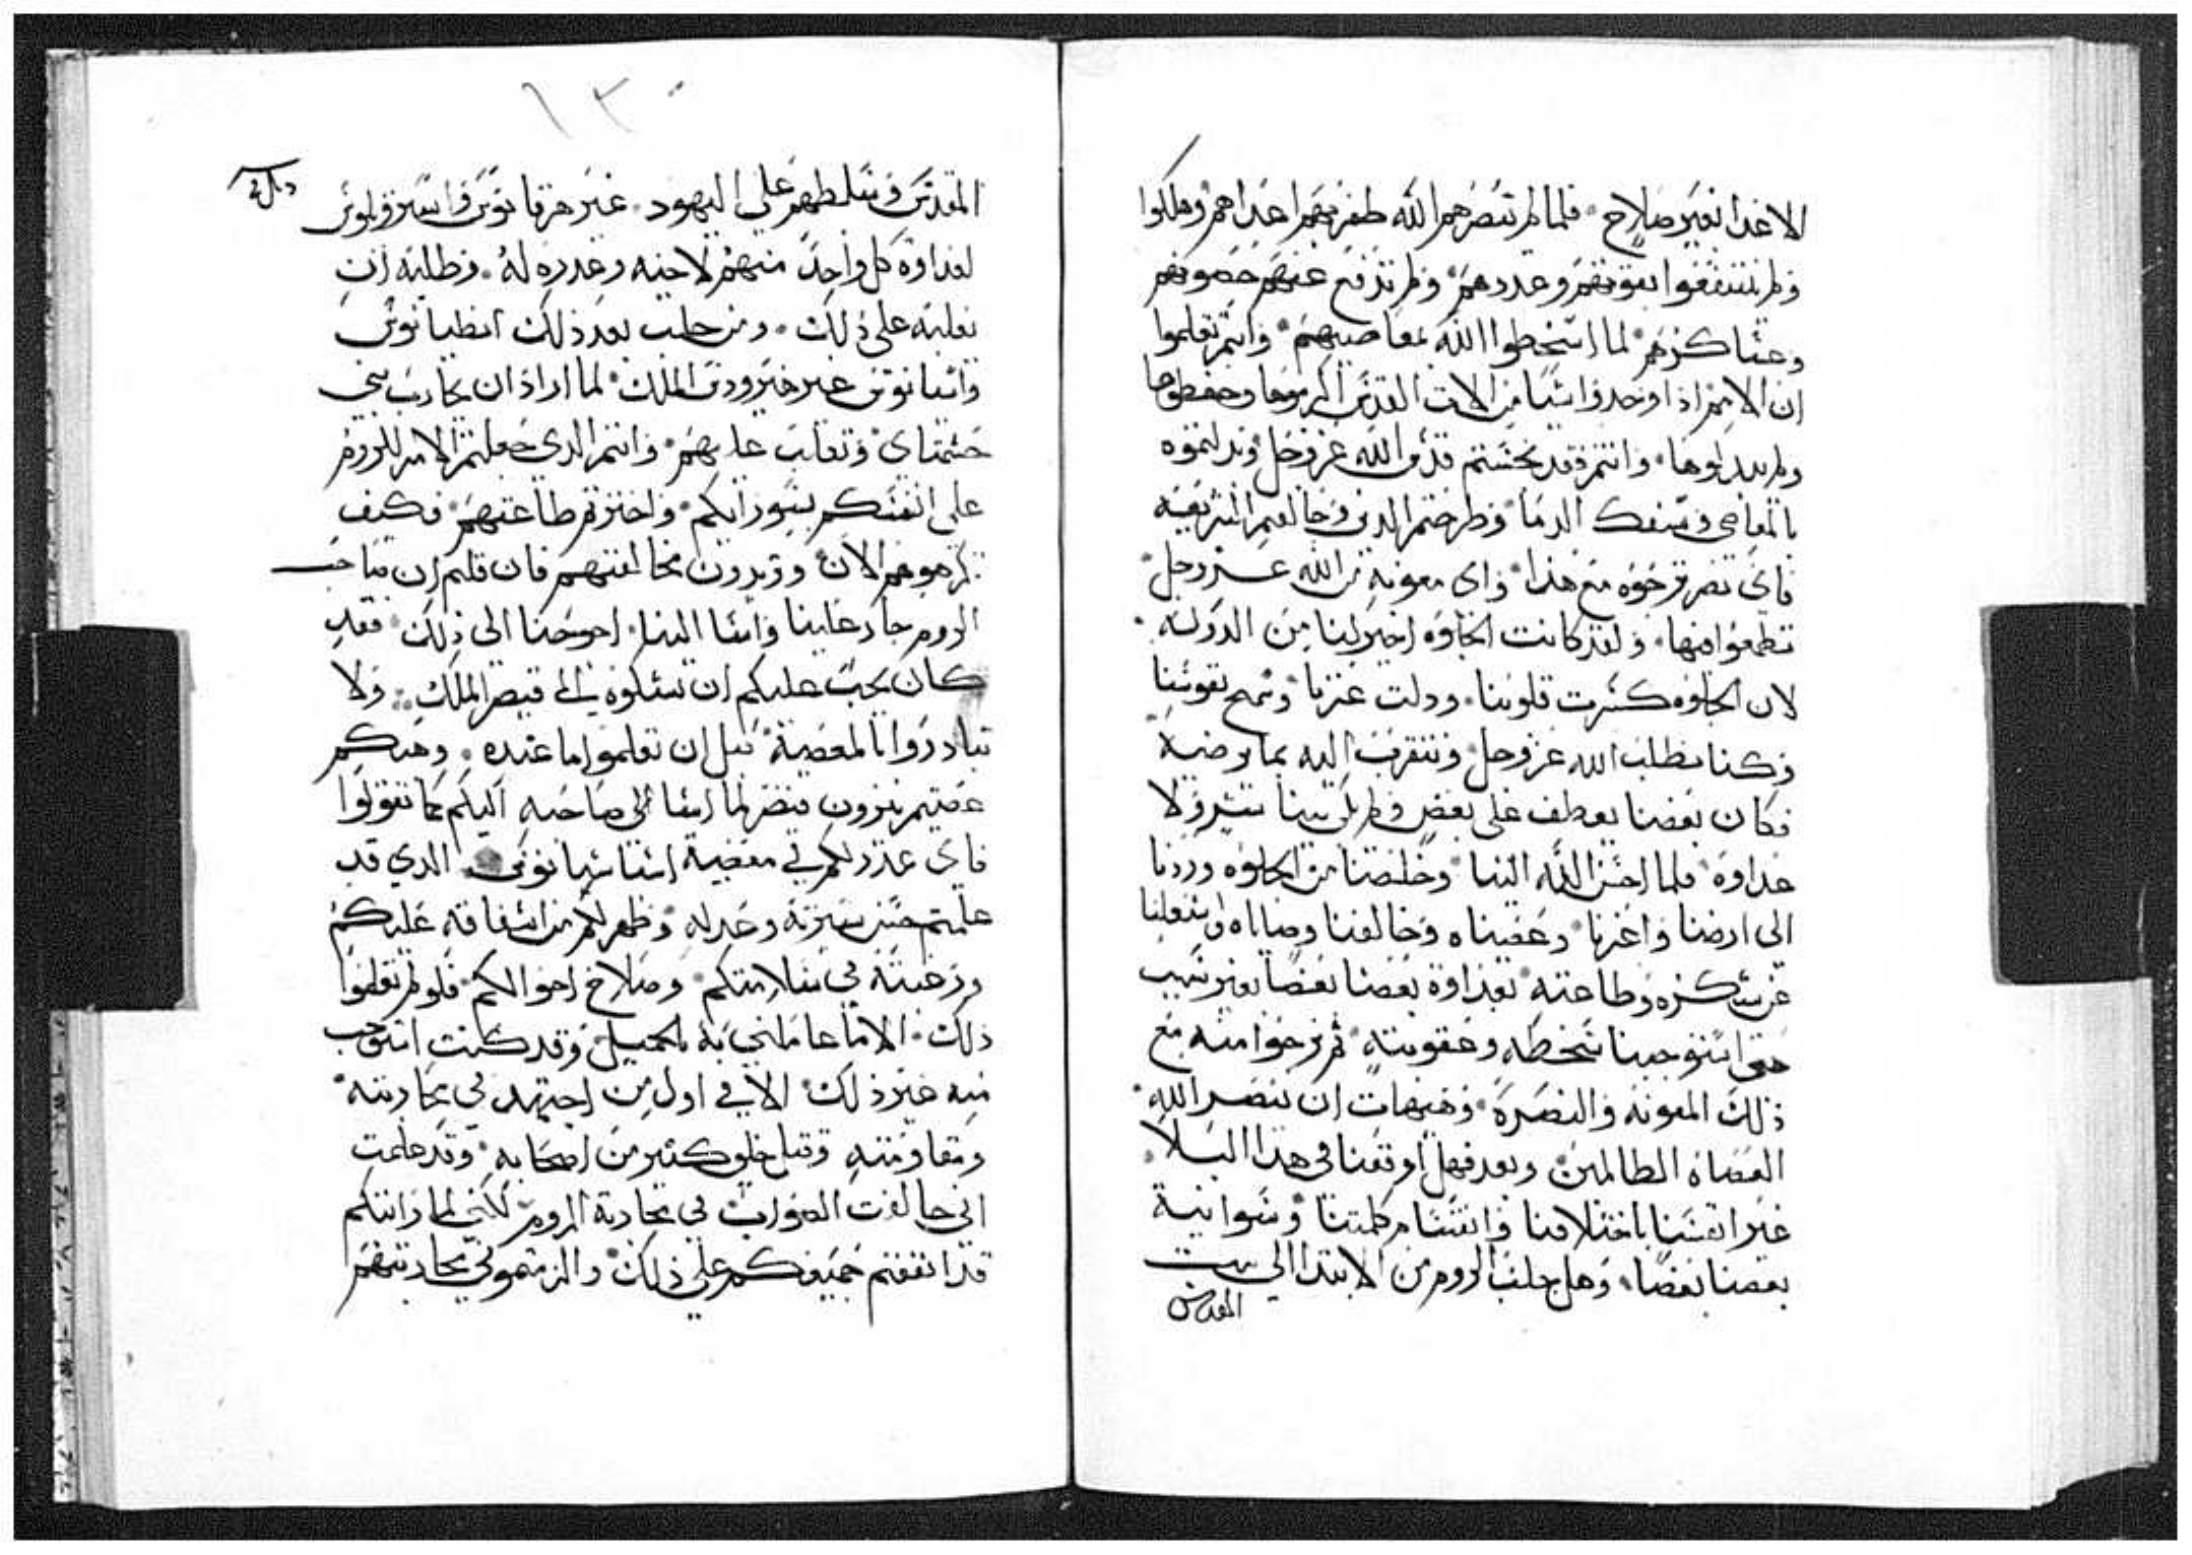 الاعدا بغير صلاح . فلما لم تنصرهم الله ظفر بهم اعداهم وهلكوا
ولم ينتفعوا بقوتهم وعددهم ولم تدفع عنهم حصونهم
وعساكرهم لما اسخطوا الله بمعاصيهم وانتم تعلموا
ان الامم اذا وجدوا شيا من الات القدس اكرموها وحفظوها
ولم يبدلوها . وانتم فقد نجستم قدس الله عز وجل وبدلتموه
بالمعاصي وسفك الدما وطرحتم الدين وخالفتم الشريعة
فاي نصر ترجوه مع هذا واي معونه من الله عز وجل
تطمعوا فيها . ولقد كانت الجلوه اخير لنا من الدولة .
لان الجلوه كسرت قلوبنا . ودلت عزنا وقمع نفوسنا
وكنا نطلب الله عز وجل ونتقرب اليه بما يرضيه
فكان بعضنا يعطف على بعض ولم يكن بيننا شر ولا
عداوة فلما احسن الله الينا وخلصنا من الجلوه وردنا
الى ارضنا واعزنا وعصيناه وخالفنا وصاياه واشتغلنا
عن شكره وطاعته بعداوة بعضنا بعضا بغير سبب
حتى استوجبنا سخطه وعقوبته ثم نرجوا منه مع
ذلك المعونه والنصره وهيهات ان ينصر الله
العصاه الظالمين وبعد فهل اوقعنا في هذا البلا
غير انفسنا باختلافنا وانقسام كلمتنا وسوا نية
بعضنا بعضا . وهل جلب الروم من الابتدا الى بيت
المقدس
١٣٠
المقدس وسلطهم على اليهود . غير هرقانوس وارسترولوس
لعداوة كل واحد منهم لاخيه وغدره له . وطلبه ان
يغلبه على ذلك . ومن جلب بعد ذلك انطيانوس
واسيانوس غير هيرودس الملك لما اراد ان يحارب بني
حشمناي وتغلب عليهم وانتم الدي جعلتم الامر للروم
على انفسكم بسورايكم واخترتم طاعتهم فكيف
تكرهوهم الان وتريدون مخالفتهم فان قلتم ان صاحب
الروم جار علينا واسا الينا . احوجنا الى ذلك فقد
كان يجب عليكم ان تشكوه الى قيصر الملك . ولا
تبادروا بالمعصية قبل ان تعلموا ما عنده . وهبكم
عصيتم نيرون قيصر لما اسا الى صاحبه اليكم كما تقولوا
فاي عذر لكم في معصية اسباسيانوس الدي قد
علمتم حسن سيرته وعدله وظهر لكم من اشفاقه عليكم
ورغبته في سلامتكم وصلاح احوالكم فلو لم تعلموا
ذلك . الا ما عاملني به بالجميل وقد كنت استوجب
منه غير ذلك الاني اول من اجتهد في محاربته
ومقاومته وقتل خلق كثير من اصحابه وقد علمت
اني خالفت الصواب في محاربة الروم لكني لما رايتكم
قد اتفقتم جميعكم على ذلك والزمتموني محاربتهم